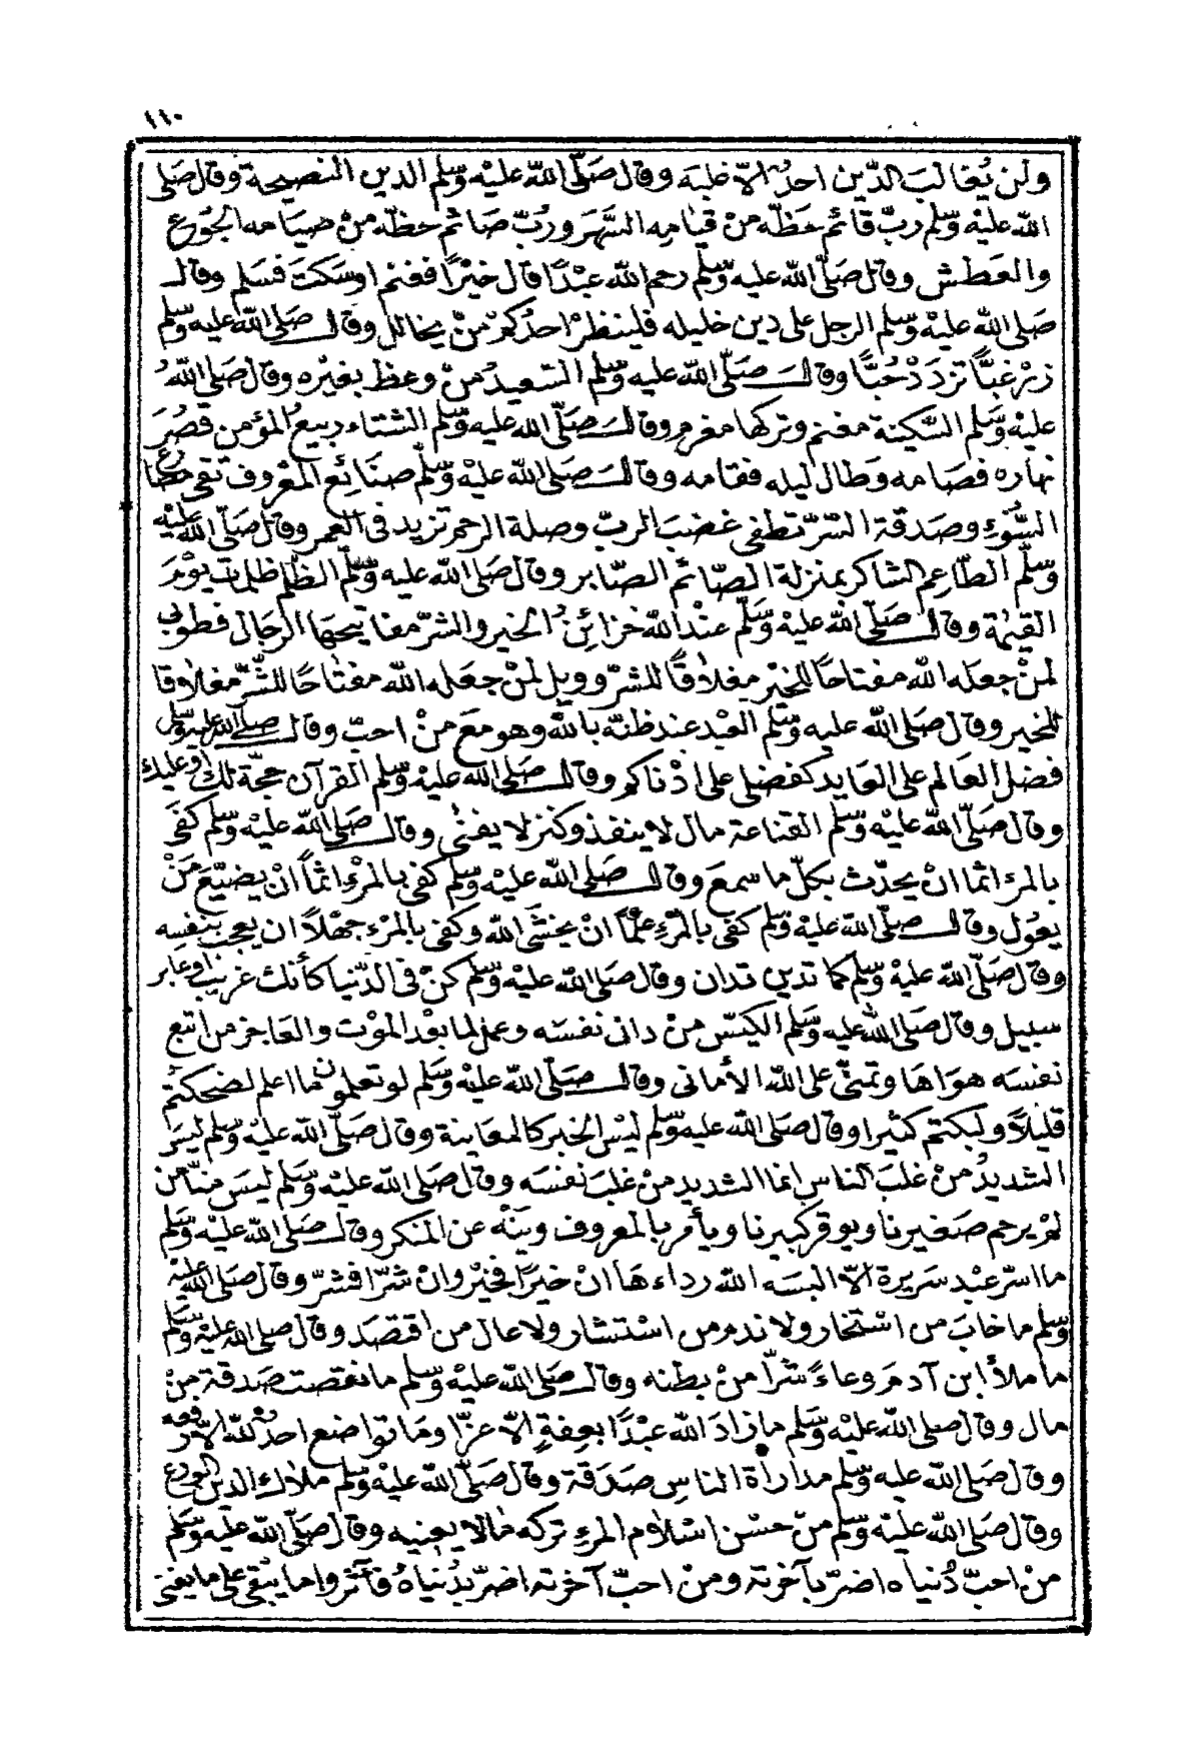 ١١٠
ولن يُغالب الدّين احدٌ الاّ غلبه وقال صَلّى الله عليْه وسّلم الدين النصيحة وقال صَلى
الله عليْه وسّلم ربّ قائم حَظّه منْ قيامِه السّهَر ورُبّ صَائم حظّه منْ صيامه الجُوع
والعَطش وقال صَلّى الله عليه وسّلم رحم الله عبْدًا قال خيْرًا فغنم او سَكتَ فسَلم وقال
صَلى الله عليْه وسّلم الرجل على دين خليله فلينظرْ احدُكم منْ يخالل وقال صَلى الله عليه وسّلم
زرْ غبّاً تزدَدْ حُبّاً وقال صَلّى الله عليه وسّلم السّعيدُ منْ وعظ بغيْره وقال صَلى الله
عليْه وسَّلم السّكينة مغنم وتركها مغرم وقال صَلّى الله عليه وسّلم الشتاء ربيعُ المؤمن قصُرَ
نهاره فصَامه وَطال ليله فقامه وقال صَلى الله عليْه وسّلم صنَائع المعْروف تقى مصَارع
السُّوءِ وصَدقة السّرّ تطفى غضبَ الربّ وصلة الرحم تزيد فى العمر وقال صَلّى الله عليْه
وسّلم الطّاعِم الشاكر بمنزلة الصّائم الصّابر وقال صَلى الله عليه وسّلم الظلم ظلمات يوْمَ
القيٰمة وقال صَلّى الله عليْه وسَّلم عنْد الله خزائنُ الخير والشرّ مفاتيحهَا الرجال فطوبى
لمنْ جعَله الله مفتاحًا للخيْر مغلاقًا للشرّ وويل لمنْ جعَله الله مفتاحًا للشّرّ مغلاقا
للخير وقال صَلى الله عليه وسّلم العبْد عند ظنّه بالله وهو معَ منْ احبّ وقال صلى الله عليه وسلم
فضل العَالم على العَابد كفضلى على ادْناكم وقال صَلى الله عليْه وسّلم القرآن حجّة لك أو عليك
وقال صَلّى الله عليْه وسَّلم القناعة مال لا ينفذ وكنز لا يفنٰى وقال صَلى الله عليْه وسّلم كفىَ
بالمرء اثما انْ يحدّث بكلّ ما سمعَ وقال صَلى الله عليْه وسّلم كفى بالمرْءِ اثماً انْ يضيّعَ منْ
يعُول وقال صلّى الله عليْه وسّلم كفى بالمرْءِ علْمًا انْ يخشَى الله وكفى بالمرْءِ جهْلاً ان يعجبَ بنفسِه
وقال صَلّى الله عليْه وسّلم كما تدين تدان وقال صَلى الله عليْه وسّلم كنْ فى الدّنيا كأنك غريبْ أو عابر
سبيل وقال صَلى الله عليه وسّلم الكيّس منْ دان نفسَه وعمل لما بعْد الموْت والعَاجز من اتبع
نفسَه هوَاهَا وتمنّى على الله الأمانى وقال صَلّى الله عليْه وسَّلم لو تعلمون ما اعلم لضحكتم
قليلاً ولبكيتم كثيرا وقال صَلى الله عليه وسّلم ليْس الخبر كالمعَاينة وقال صَلّى الله عليْه وسّلم ليسَ
الشديدُ منْ غلبَ الناس انما الشديد منْ غلبَ نفسَه وقال صَلى الله عليْه وسّلم ليسَ منّا من
لمْ يرحم صَغيرنا ويوقر كبيرنا ويأمر بالمعروف وينْه عن المنكر وقال صَلى الله عليْه وسّلم
ما اسرّ عبْد سَريرة الاّ البسَه الله رداءهَا انْ خيرًا فخيْر وانْ شرّا فشرّ وقال صَلى الله عليْه
وسّلم ما خابَ من اسْتخار ولا ندم من اسْتشار ولا عال من اقتصَد وقال صلى الله عليْه وسّلم
ما ملأ ابن آدمَ وعاءً شرّا منْ بطنه وقال صَلى الله عليْه وسّلم ما نقصت صَدقة منْ
مال وقال صلى الله عليْه وسَّلم ما زادَ الله عبْدًا بعفةٍ الاّ عزّا ومَا تواضع احدٌ لله الاّ رفعه
وقال صَلى الله عليه وسّلم مداراة الناسِ صَدَقة وقال صَلّى الله عليْه وسّلم ملاك الدين الورع
وقال صَلى الله عليْه وسّلم منْ حسْن اسْلاَم المرءِ ترْكه ما لا يعنيه وقال صَلّى الله عليْه وسَّلم
منْ احبّ دُنياه اضرّ بآخرته ومنْ احبّ آخرته اضرّ بدُنياهُ فآثروا ما يبْقى على ما يفنى